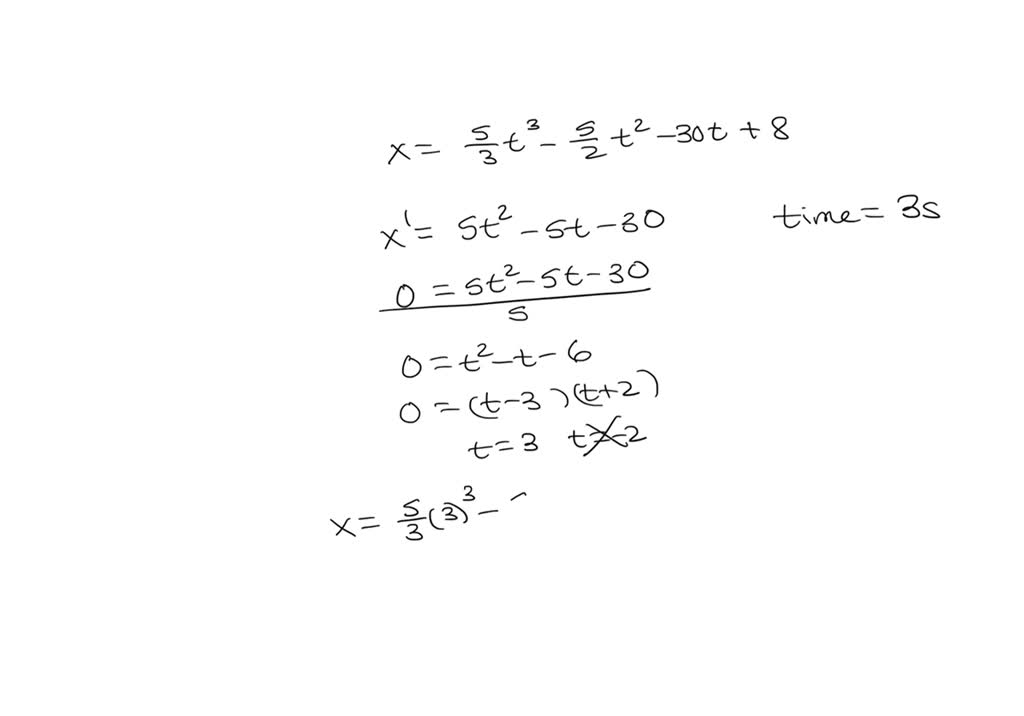 x = 5/3 t³ - 5/2 t² - 30t + 8
x' = 5t² - 5t - 30
time = 3s
0 = 5t² - 5t - 30
5
0 = t² - t - 6
0 = (t-3)(t+2)
t = 3 t = -2
x = 5/3 (3)³ -